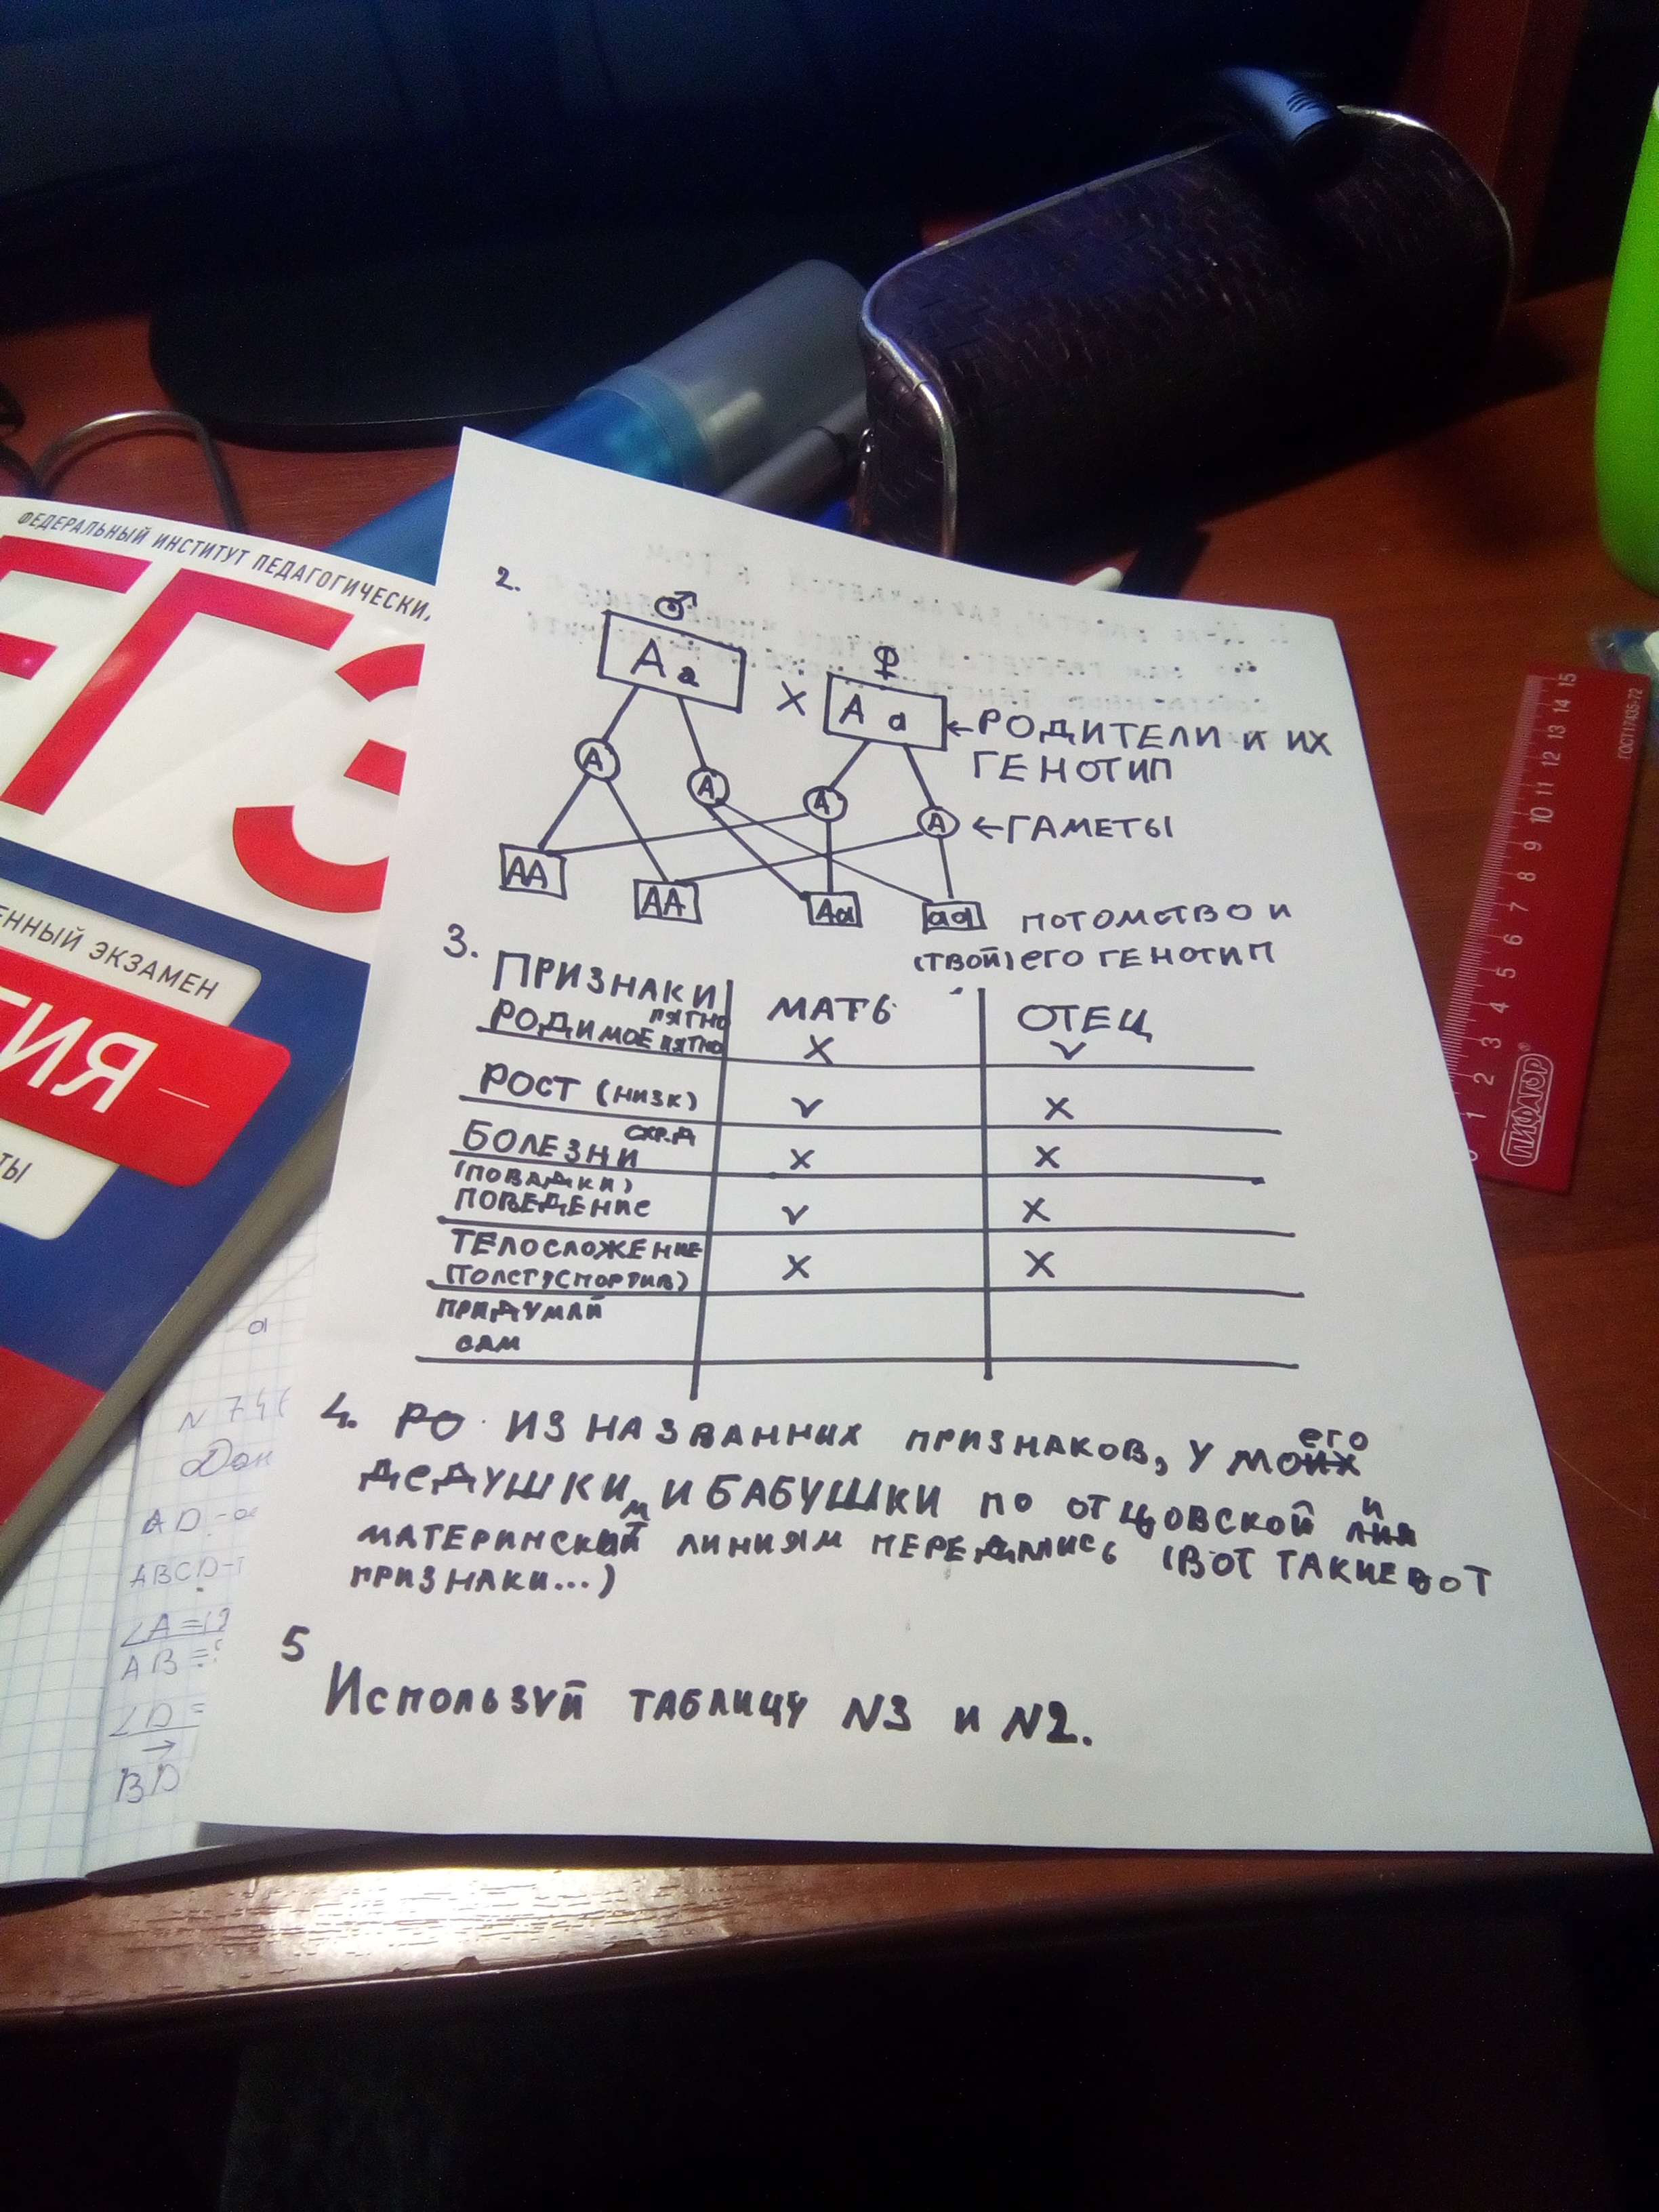 ФЕДЕРАЛЬНЫЙ ИНСТИТУТ ПЕДАГОГИЧЕСКИ
ЕГЭ
ЕННЫЙ ЭКЗАМЕН
ГИЯ
ТЫ
2.
♂
Аа
X
♀
Аа
←РОДИТЕЛИ И ИХ
ГЕНОТИП
А
А
А
А
←ГАМЕТЫ
АА
АА
Аа
аа
ПОТОМСТВО И
(ТВОЙ) ЕГО ГЕНОТИП
3.
ПРИЗНАКИ МАТЬ ОТЕЦ
РОДИМОЕ ПЯТНО X V
РОСТ (НИЗК) V X
БОЛЕЗНИ X X
(ПОВАДКИ)
ПОВЕДЕНИЕ V X
ТЕЛОСЛОЖЕНИЕ
(ТОЛСТ,СПОРТИВ) X X
ПРИДУМАЙ
САМ
4. РО ИЗ НАЗВАННИХ ПРИЗНАКОВ, У МОЕГО
ДЕДУШКИ И БАБУШКИ ПО ОТЦОВСКОЙ И
МАТЕРИНСКИМ ЛИНИЯМ ПЕРЕДАЛИСЬ (ВОТ ТАКИЕ ВОТ
ПРИЗНАКИ...)
5
Используй ТАБЛИЦУ N3 и N2.
N 746
AD
ABCD-
∠A=12
AB=?
∠D=
BD
0 1 2 3 4 5 6 7 8 9 10 11 12 13 14 15
ПИФАГОР®
ГОСТ17435-72